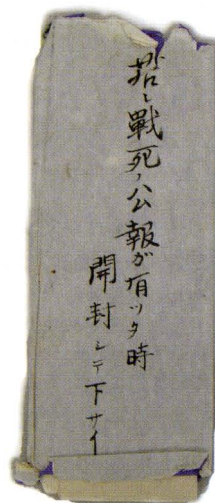 若シ戰死ノ公報ガ有ツタ時
開封シテ下サイ